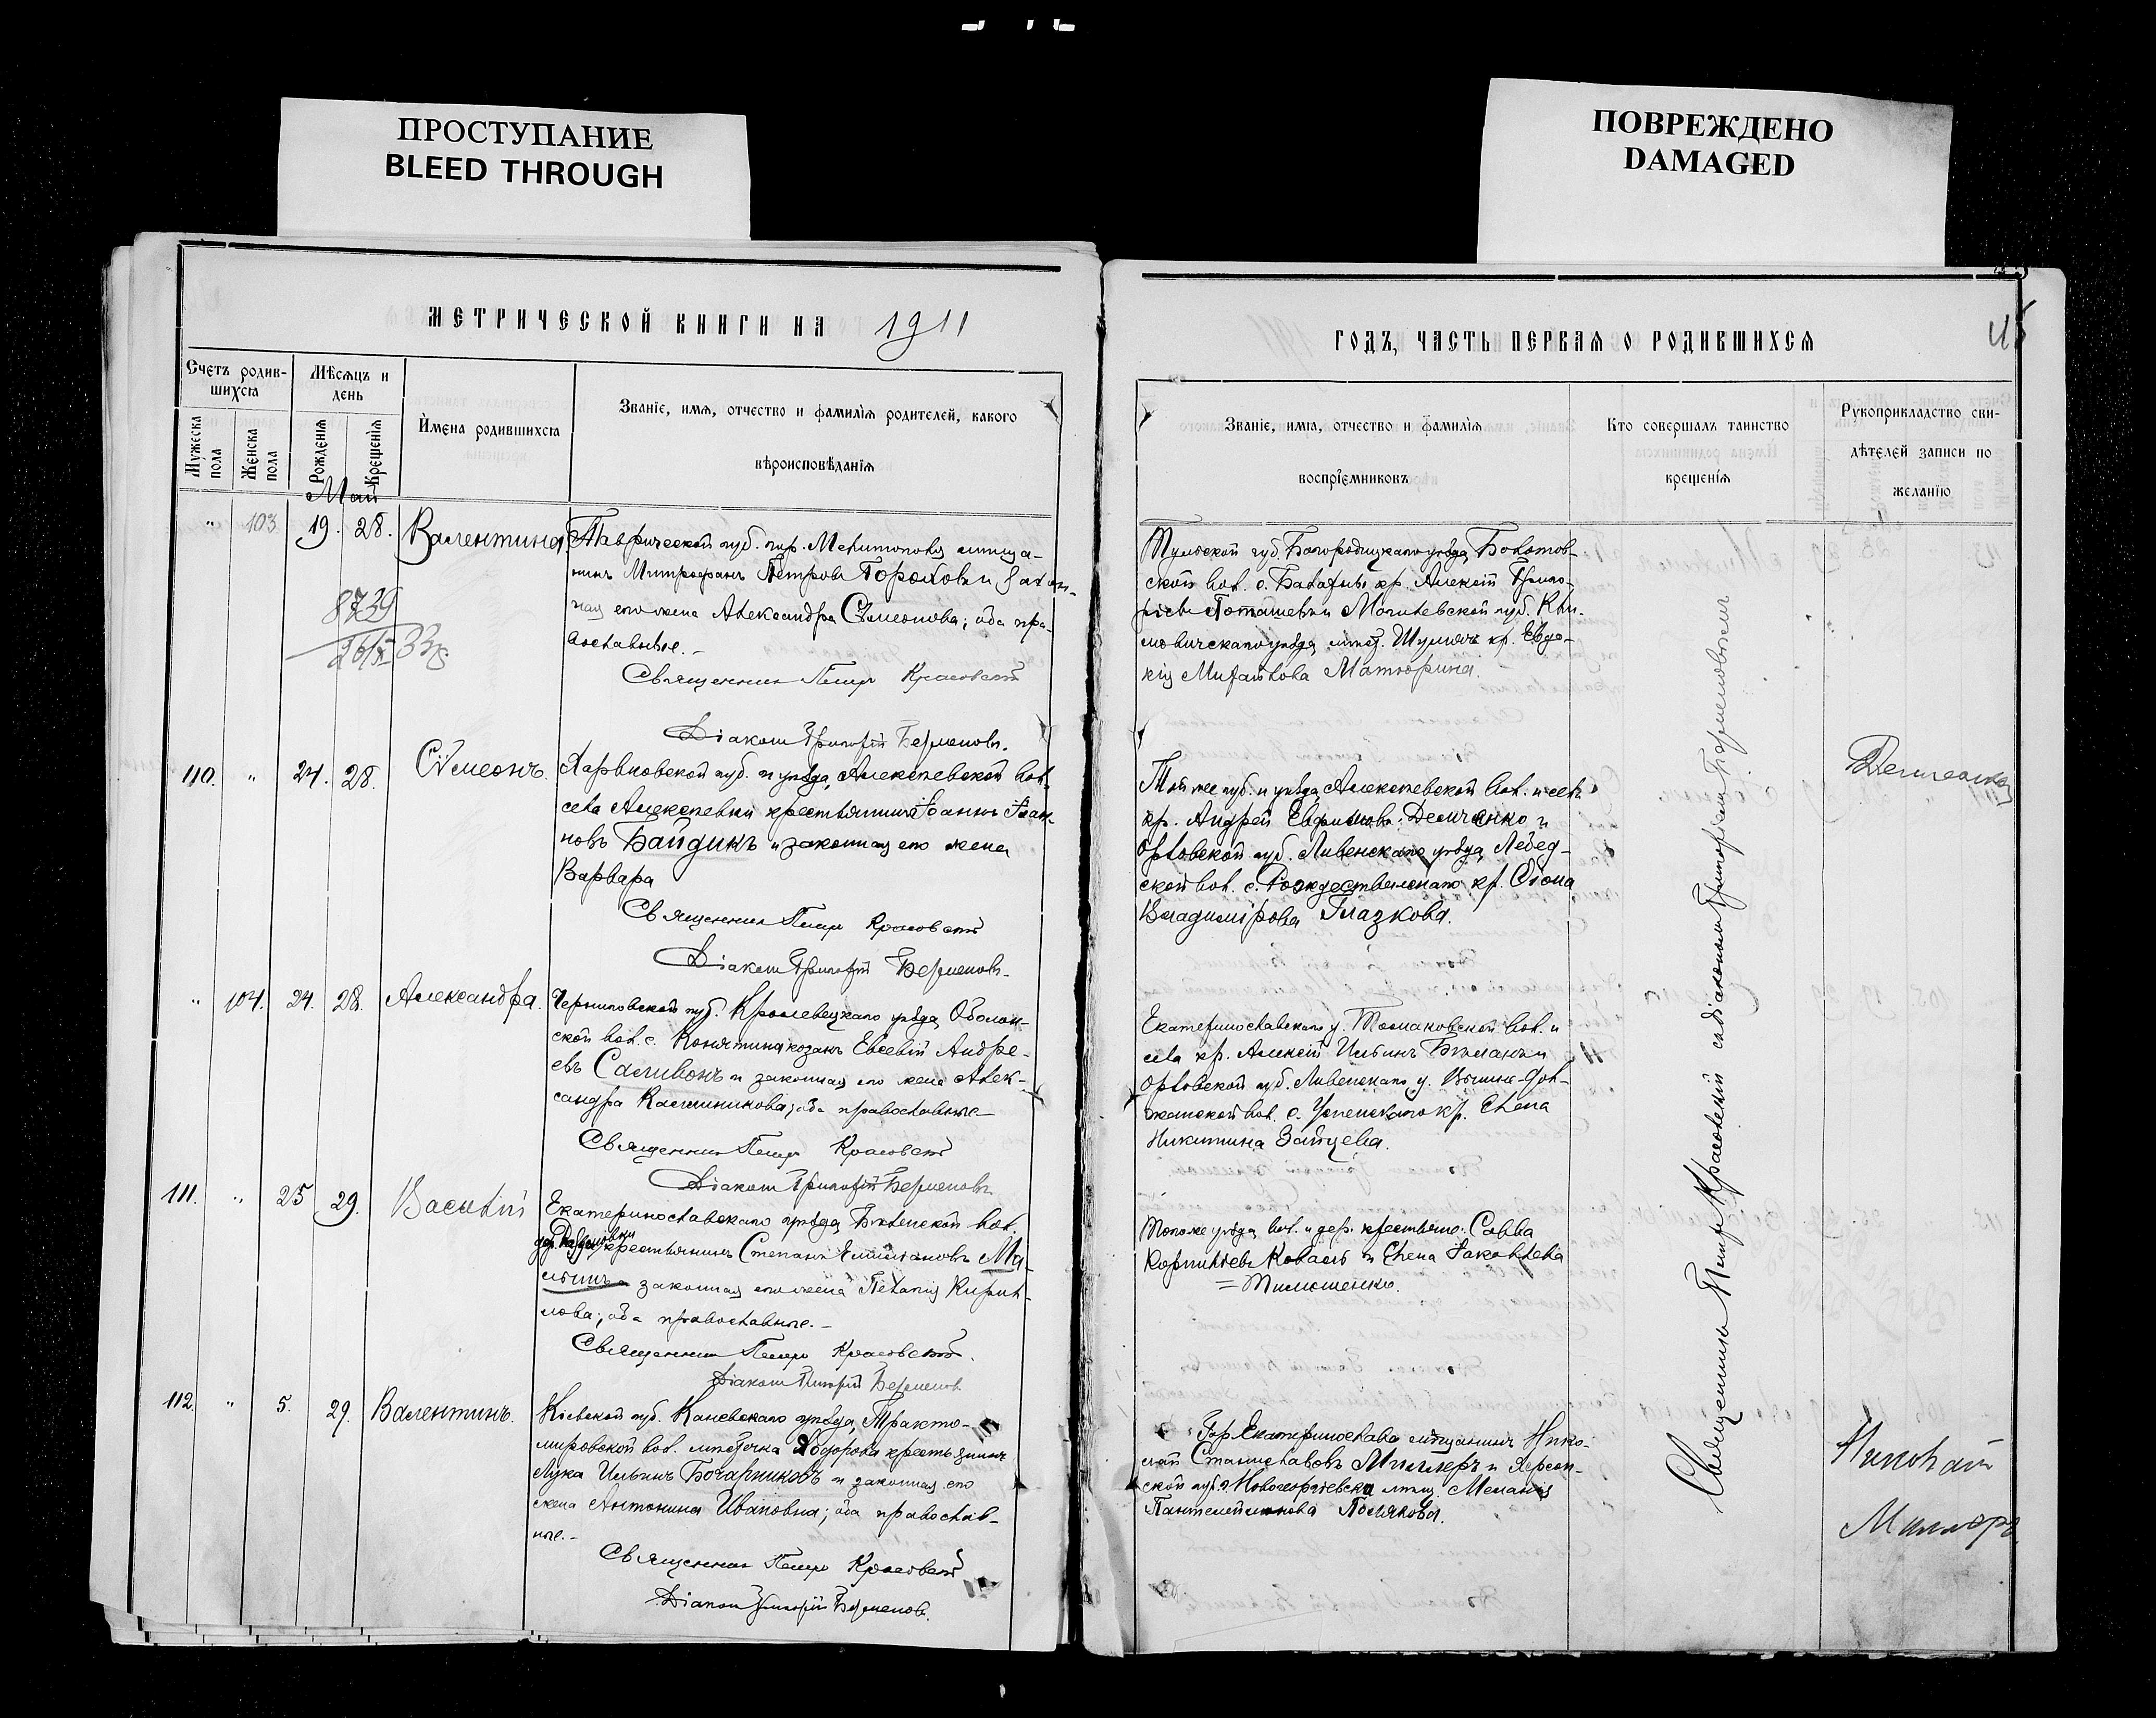 ПРОСТУПАНИЕ
BLEED THROUGH
ПОВРЕЖДЕНО
DAMAGED
МЕТРИЧЕСКОЙ КНИГИ НА 1911
Счетъ родив-
шихся
Мужеска пола
Женска пола
Мѣсяцъ и
день
Рожденія
Крещенія
Имена родившихся
Званіе, имя, отчество и фамилія родителей, какого
вѣроисповѣданія
Май
" 103 19. 28. Валентина
Таврической губ. гор. Мелитополя мѣща-
нинъ Митрофанъ Петровъ Гороховъ и закон-
ная его жена Александра Сѵмеонова; оба пра-
вославные.-
Священникъ Петръ Красовскій
Діаконъ Григорій
8739
110. " 24. 28. Сѵмеонъ.
Харьковской губ. и уѣзда, Алексѣевской вол.
села Алексѣевки крестьянинъ Іоаннъ Іоан-
новъ Байдикъ и законная его жена
Варвара
Священникъ Петръ Красовскій
Діаконъ Григорій
" 104. 24. 28. Александра.
Черниговской губ. Кролевецкаго уѣзда, Оболон-
ской вол. с. Конятина козакъ Евсевій Андре-
евъ Саливонъ и законная его жена Алек-
сандра Калинникова; оба православные-
Священникъ Петръ Красовскій
Діаконъ Григорій
111. " 25 29. Василій
Екатеринославскаго уѣзда, вол.
дер. крестьянинъ Степанъ Емиліановъ
законная его жена Пелагія Кирил-
лова; оба православные.-
Священникъ Петръ Красовскій.
Діаконъ Григорій
112. " 5. 29. Валентинъ.
Кіевской губ. Каневскаго уѣзда, Тракто-
мировской вол. мѣстечка Ходорова крестьянинъ
Лука Ильинъ Бочарниковъ и законная его
жена Антонина Ивановна; оба православ-
ные.-
Священникъ Петръ Красовскій
Діаконъ Григорій
ГОДЪ, ЧАСТЬ ПЕРВАЯ О РОДИВШИХСЯ
45
Званіе, имя, отчество и фамилія
воспріемниковъ
Кто совершалъ таинство
крещенія
Рукоприкладство сви-
дѣтелей записи по
желанію
Тульской губ. Богородицкаго уѣзда,
ской вол. с. кр. Алексій Григо-
рьевъ и Могилевской губ. Кли-
мовичскаго уѣзда, мѣст. Шумячъ кр. Евдо-
кія Михайлова Матюрина.
Той же губ. и уѣзда, Алексѣевской вол. и села
кр. Андрей Евфимовъ Демченко и
Орловской губ. Ливенскаго уѣзда, Лебед-
ской вол. с. Рождественскаго кр.
Владимірова Глазкова.
Демченко
Екатеринославскаго у. Томаковской вол. и
села кр. Алексій Ильинъ и
Орловской губ. Ливенскаго у.
вол. с. Успенскаго кр. Елена
Никитина Зайцева.
Того же уѣзда, вол. и дер. крестьяне: Савва
Корнильевъ Коваль и Елена Іаковлева
= Тимошенко.
Гор. Екатеринослава мѣщанинъ Нико-
лай Станиславовъ Миллеръ и Херсон-
ской губ. г. Новогеоргіевска мѣщ. Меланія
Пантелеймонова Полякова.
Священникъ Петръ Красовскій съ діакономъ Григоріемъ
Николай
Миллеръ